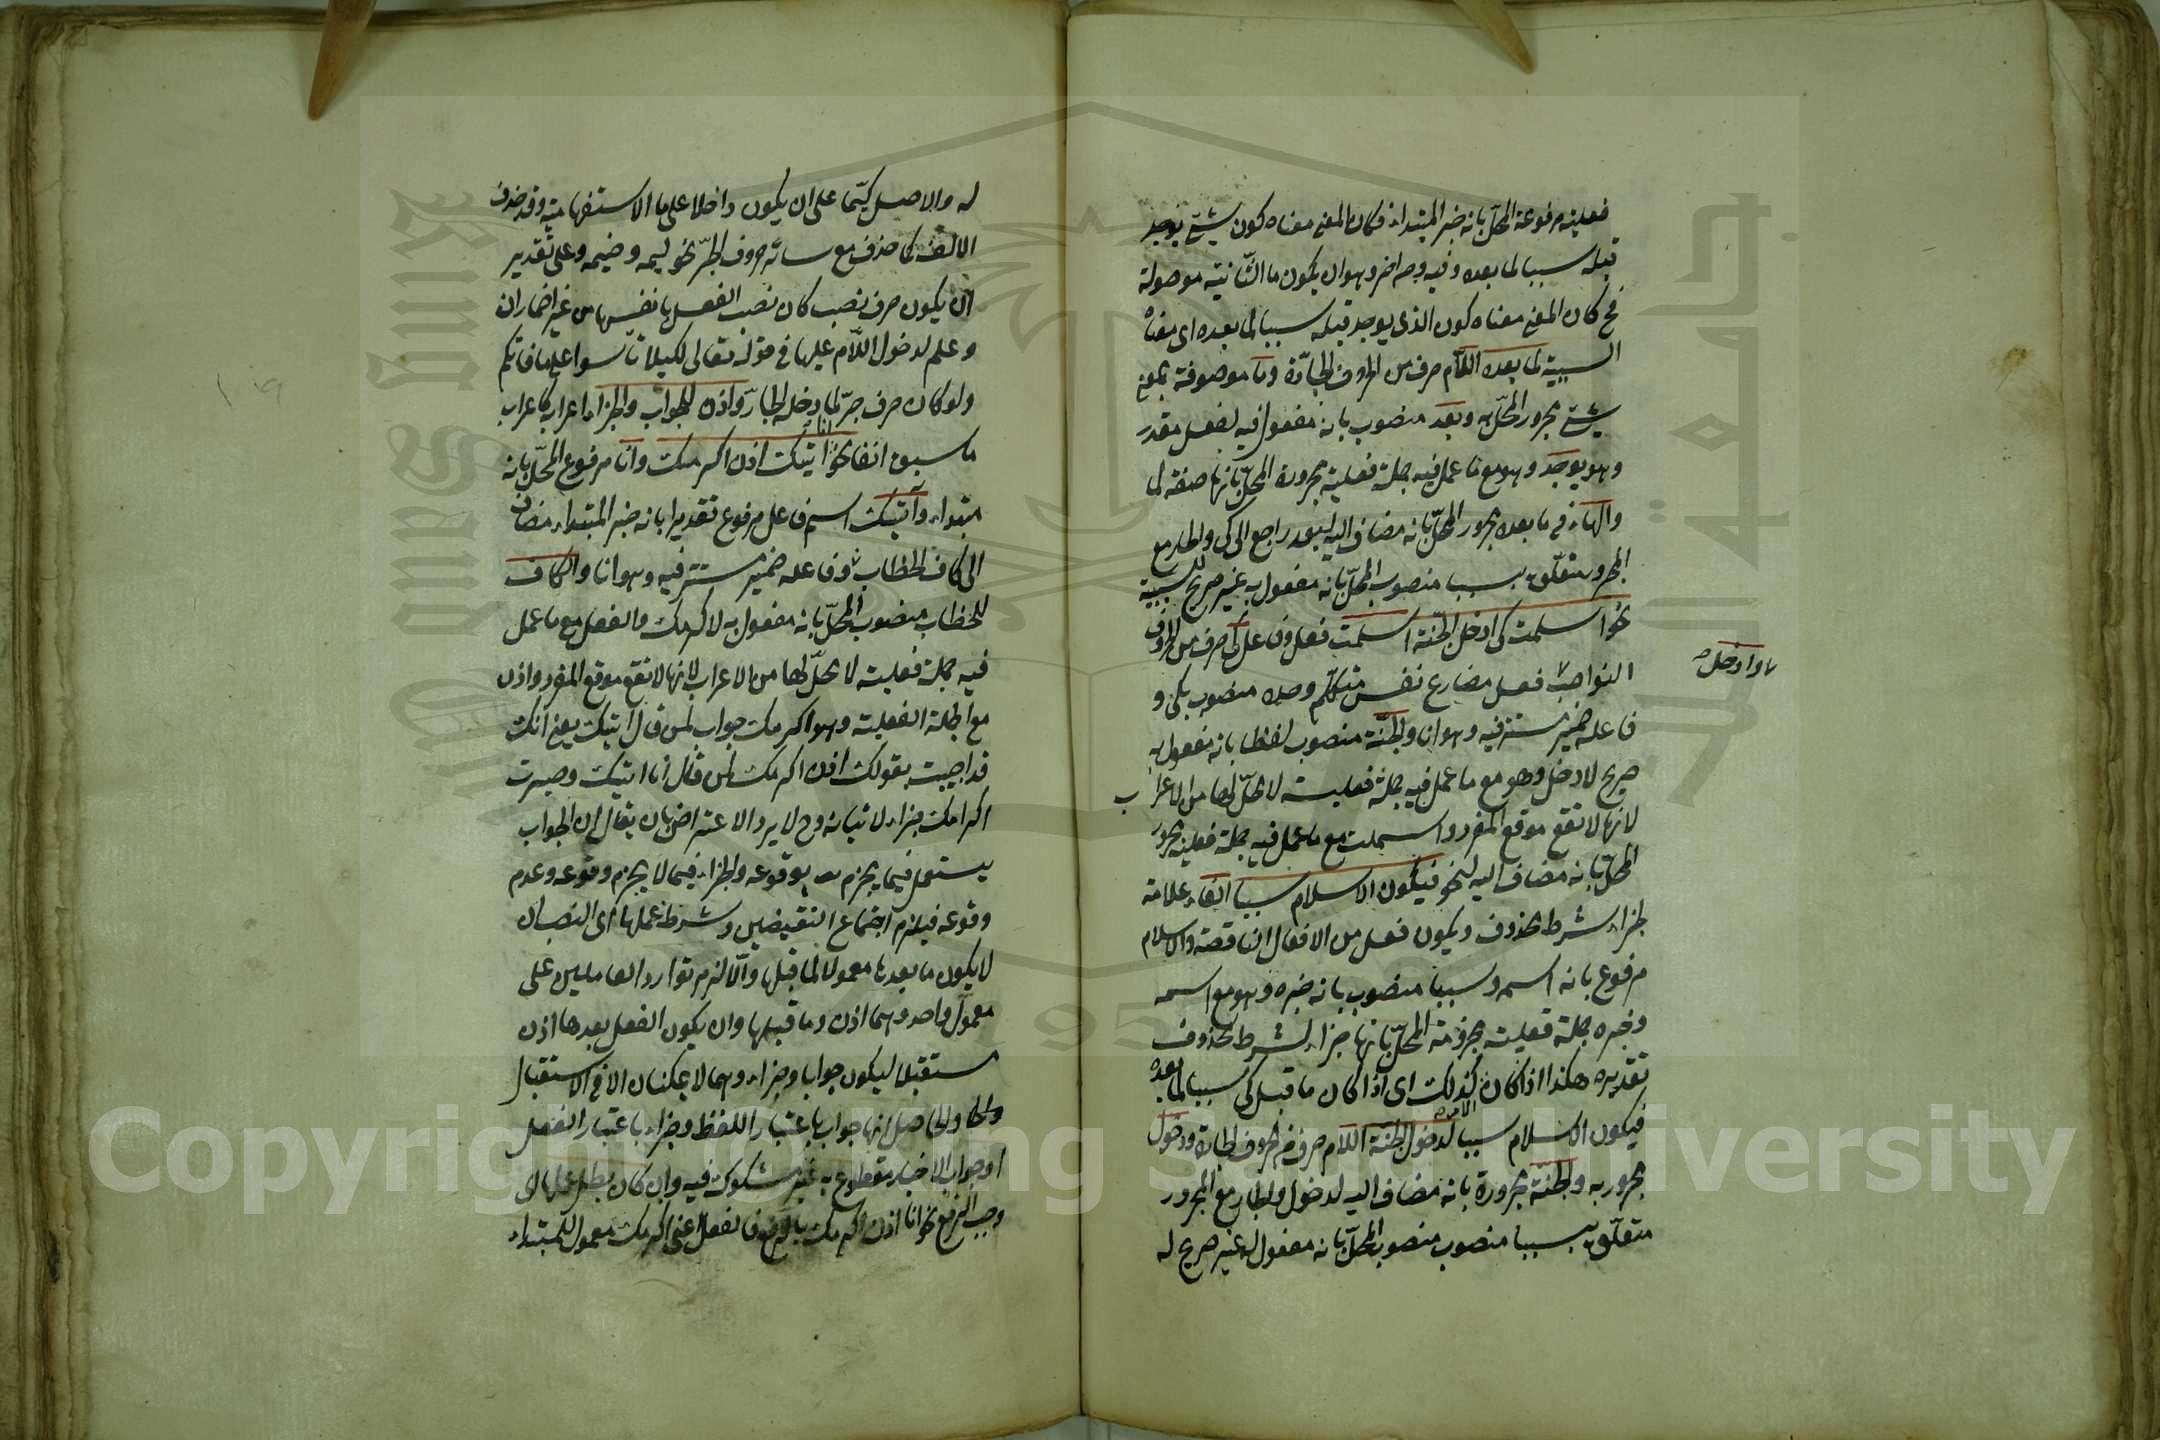 فعلية مرفوعة المحلّ بانه خبر المبتداء فكان المعنى معناه كون شئ يوجد
قبله سببا لما بعده وفيه وجه اخر وهو ان يكون ما الثّانية موصولة
فح كان المعنى معناه كون الذى يوجد قبله سببا لما بعده اى معناه
السببية لما بعده اللّام حرف من الحروف الجارّة وما موصوفة بمعنى
شئ مجرور المحلّ به وبعد منصوب بانه مفعول فيه لفعل مقدر
وهو يوجد وهو مع ما عمل فيه جملة فعلية مجرورة المحلّ بانها صفة لما
والهاء فى ما بعده مجرور المحلّ بانه مضاف اليه لبعد راجع الى كى والجار مع
المجرور متعلّق بسببا منصوب المحلّ بانه مفعول به غير صريح للسببية
نحو اسلمت كى ادخل الجنّة اسلمت فعل وفاعل كى حرف من الحروف
النواصب فعل مضارع نفس متكلّم وحده منصوب بكى و
فاعله ضمير مستتر فيه وهو انا والجنّة منصوب لفظا بانه مفعول به
صريح لادخل وهو مع ما عمل فيه جملة فعلية لا محلّ لها من الاعراب
لانها لا تقع موقع المفرد واسلمت مع ما عمل فيه جملة فعلية مجرور
المحلّ بانه مضاف اليه لنحو فيكون الاسلام سببا الفاء علامة
لجزاء شرط محذوف ويكون فعل من الافعال الناقصة والاسلام
مرفوع بانه اسمه وسببا منصوب بانه خبره وهو مع اسمه
وخبره جملة فعلية مجزومة المحلّ بانها جزاء لشرط محذوف
تقديره هكذا اذا كان كذلك اى اذا كان ما قبل كى سببا لما بعده
فيكون الاسلام سببا لدخول الجنّة اللام حرف من الحروف الجارة ودخول
مجرور به والجنّة مجرورة بانه مضاف اليه لدخول والجار مع المجرور
متعلّق بسببا منصوب منصوب المحلّ بانه مفعول له غير صريح له
وادخل
له والاصل كيما على ان يكون داخلا على ما الاستفهامية وقد حذف
الالف كما حذف مع سائر حروف الجرّ نحو لمه وفيمه وعلى تقدير
ان يكون حرف نصب كان نصب الفعل بانفسها من غير اضمار ان
وعلم لدخول اللّام عليها فى قوله تعالى لكيلا تأسوا على ما فاتكم
ولو كان حرف جرّ لما دخله الجارّ واذن للجواب والجزاء اعراب كاعراب
ما سبق انفا نحو انا اتيك اذن اكرمك وانا مرفوع المحلّ بانه
مبتداء وآتيك اسم فاعل مرفوع تقديرا بانه خبر المبتداء مضاف
الى كاف الخطاب وفاعله ضمير مستتر فيه وهو انا والكاف
للخطاب منصوب المحلّ بانه مفعول به لاكرمك والفعل مع ما عمل
فيه جملة فعلية لا محلّ لها من الاعراب لانها لا تقع موقع المفرد واذن
مع الجملة الفعلية وهو اكرمك جواب لمن قال اتيك يعنى انك
قد اجبت بقولك اذن اكرمك لمن قال انا اتيك وصيرت
اكرامك جزاء لاتيانه وح لا يرد الاعتراض بان يقال ان الجواب
يستعمل فيما يجزم بوقوعه والجزاء فيما لا يجزم وقوعه وعدم
وقوعه فيلزم اجتماع النقيضين وشرط عملها اى النصب ان
لا يكون ما بعدها معمولا لما قبلها والّا لزم توارد العاملين على
معمول واحد وهما اذن وما قبلها وان يكون الفعل بعدها اذن
مستقبلا ليكون جوابا وجزاء وهما لا يمكنان الا فى الاستقبال
والحاصل انها جواب باعتبار اللفظ وجزاء باعتبار الفعل
او جواب لاخبار مقطوع به غير مشكوك فيه وان كان بطل عملها اى
وجب الرفع نحو انا اذن اكرمك بالرفع فان الفعل اعنى اكرمك معمول للمبتداء